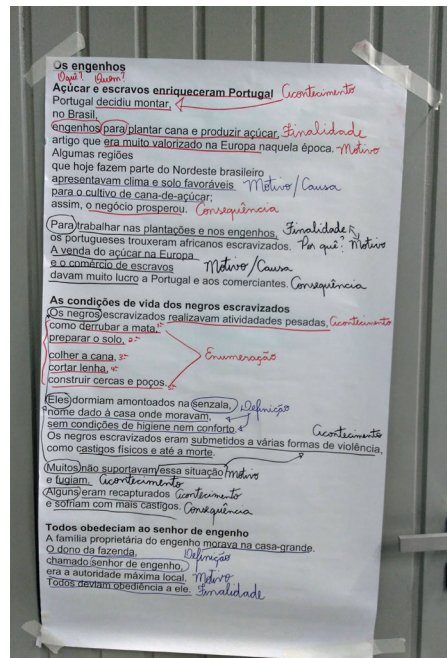 Os engenhos
O quê? Quem?
Açúcar e escravos enriqueceram Portugal Acontecimento
Portugal decidiu montar,
no Brasil,
engenhos para plantar cana e produzir açúcar, Finalidade
artigo que era muito valorizado na Europa naquela época. Motivo
Algumas regiões
que hoje fazem parte do Nordeste brasileiro
apresentavam clima e solo favoráveis Motivo/Causa
para o cultivo de cana-de-açúcar;
assim, o negócio prosperou. Consequência
Para trabalhar nas plantações e nos engenhos, Finalidade
os portugueses trouxeram africanos escravizados. Por quê? Motivo
A venda do açúcar na Europa
e o comércio de escravos Motivo/Causa
davam muito lucro a Portugal e aos comerciantes. Consequência
As condições de vida dos negros escravizados
Os negros escravizados realizavam atividadades pesadas, Acontecimento
como derrubar a mata, 1-
preparar o solo, 2-
colher a cana, 3- Enumeração
cortar lenha, 4-
construir cercas e poços. 5-
Eles dormiam amontoados na senzala,
nome dado à casa onde moravam, Definição
sem condições de higiene nem conforto. Acontecimento
Os negros escravizados eram submetidos a várias formas de violência,
como castigos físicos e até a morte.
Muitos não suportavam essa situação Motivo
e fugiam. Acontecimento
Alguns eram recapturados Acontecimento
e sofriam com mais castigos. Consequência
Todos obedeciam ao senhor de engenho
A família proprietária do engenho morava na casa-grande.
O dono da fazenda, Definição
chamado senhor de engenho,
era a autoridade máxima local. Motivo
Todos deviam obediência a ele. Finalidade